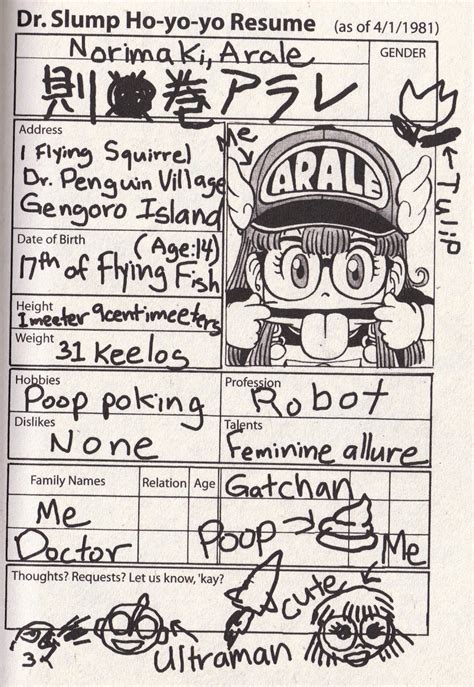 Dr. Slump Ho-yo-yo Resume (as of 4/1/1981)
Norimaki, Arale
GENDER
則巻アラレ
Address
1 Flying Squirrel
Dr. Penguin Village
Gengoro Island
Me
ARALE
Tulip
Date of Birth
(Age:14)
17th of Flying Fish
Height
1 meeter 9centimeeters
Weight
31 Keelos
Hobbies
Poop poking
Profession
Robot
Dislikes
None
Talents
Feminine allure
Family Names
Relation
Age
Gatchan
Me
Poop
Me
Doctor
Thoughts? Requests? Let us know, 'kay?
cute
Ultraman
3